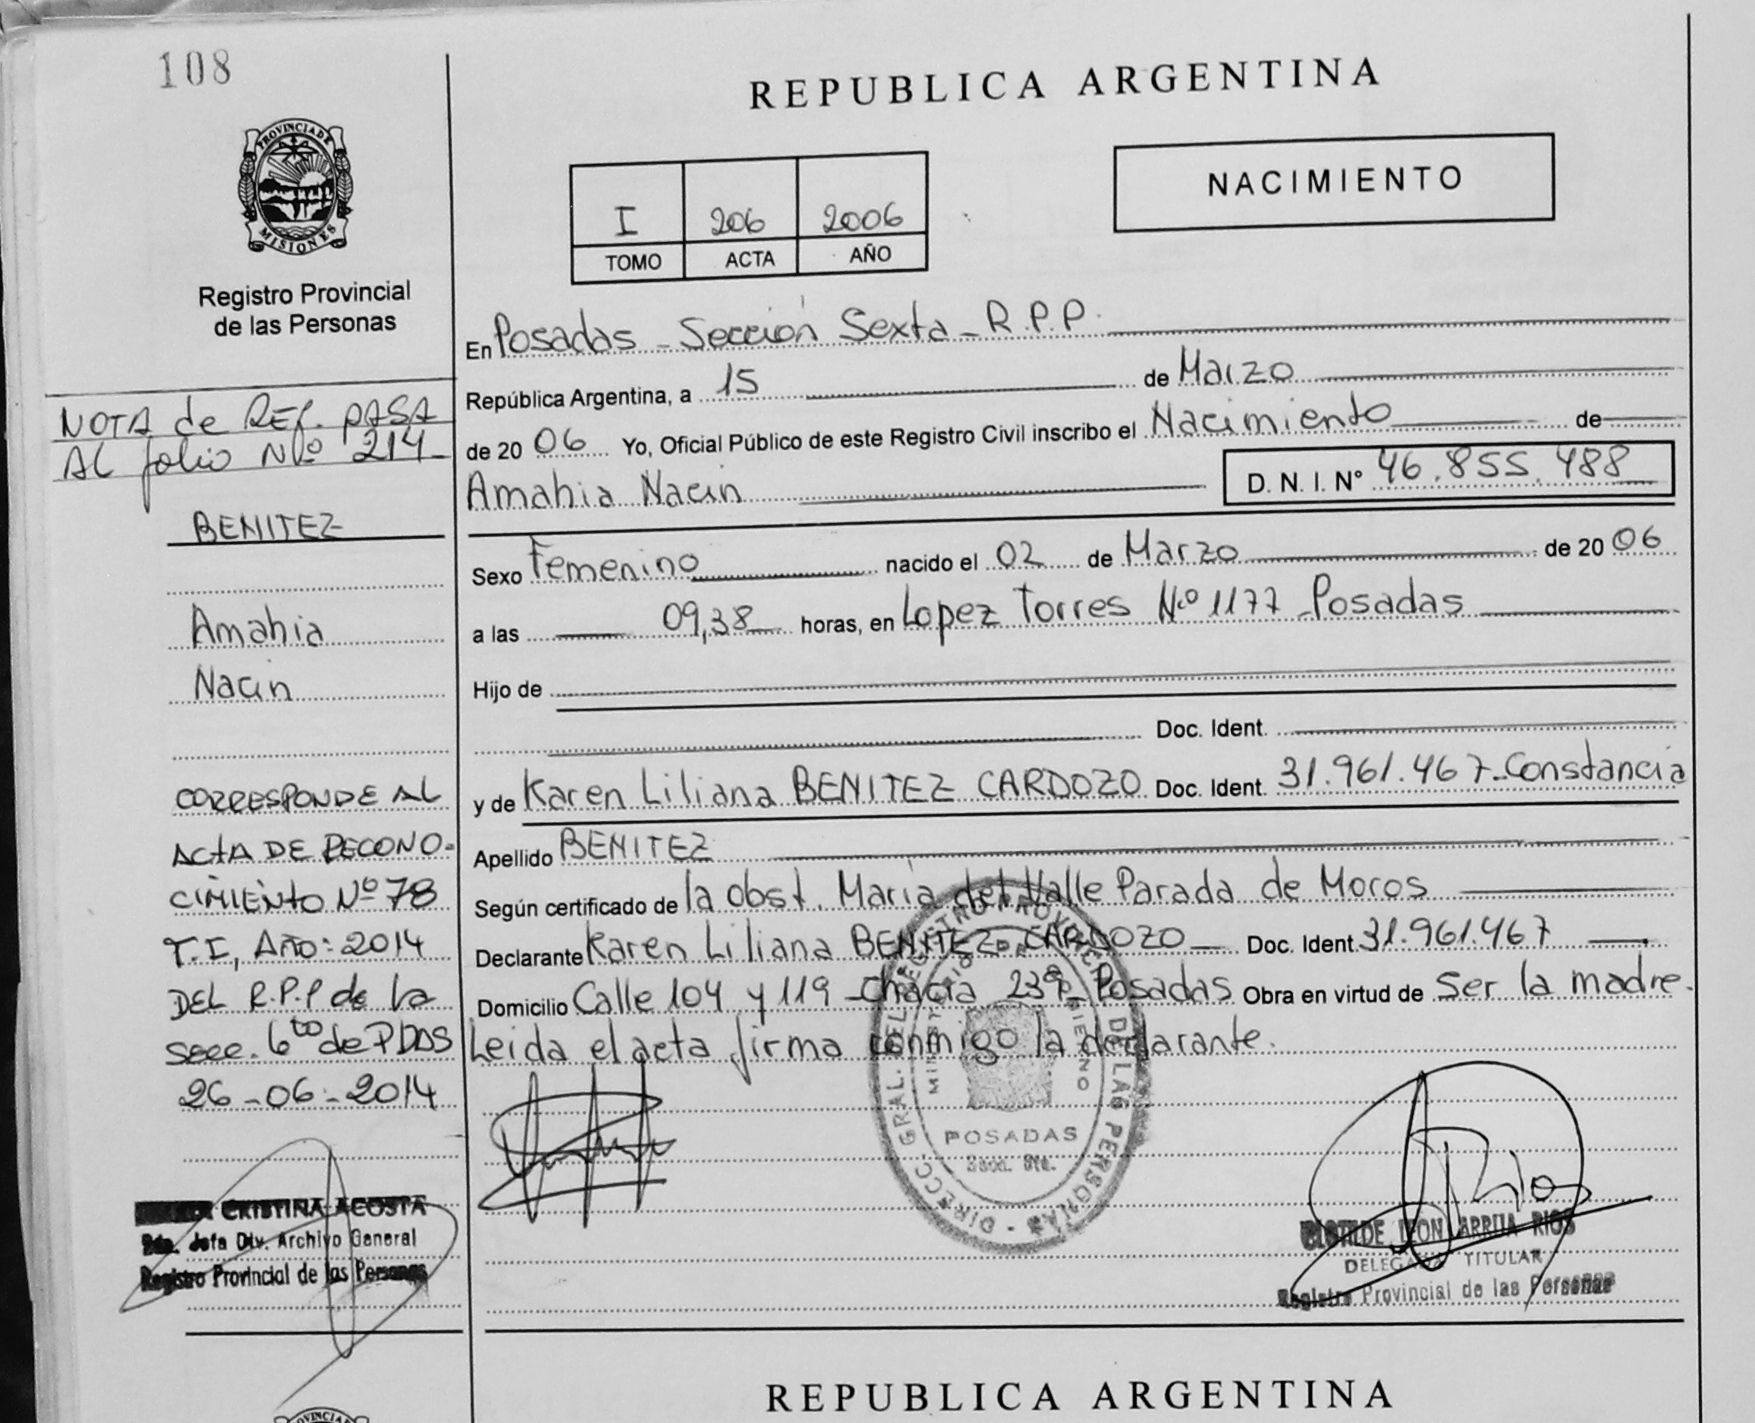 108
PROVINCIA DE
MISIONES
Registro Provincial
de las Personas
NOTA de REF. PASA
AL folio Nº 214
BENITEZ
Amahia
Nacin
CORRESPONDE AL
ACTA DE RECONO-
CIMIENTO Nº 78
T.I, AÑO: 2014
DEL R.P.P de la
secc. 6ta de PDAS
26-06-2014
CRISTINA ACOSTA
2da. Jefa Div. Archivo General
Registro Provincial de las Personas
REPUBLICA ARGENTINA
I 206 2006
TOMO ACTA AÑO
NACIMIENTO
En Posadas - Sección Sexta - R.P.P.
República Argentina, a 15 de Marzo
de 20 06 Yo, Oficial Público de este Registro Civil inscribo el Nacimiento de
Amahia Nacin D. N. I. Nº 46.855.488
Sexo Femenino nacido el 02 de Marzo de 20 06
a las 09,38 horas, en Lopez Torres Nº 1177 - Posadas
Hijo de
Doc. Ident.
y de Karen Liliana BENITEZ CARDOZO Doc. Ident. 31.961.467 - Constancia
Apellido BENITEZ
Según certificado de la obst. Maria del Valle Parada de Moros
Declarante Karen Liliana BENITEZ CARDOZO Doc. Ident. 31.961.467
Domicilio Calle 104 y 119 - Chacra 239 - Posadas Obra en virtud de Ser la madre.
Leida el acta firma conmigo la declarante.
DIRECC. GRAL. DEL REGISTRO PROVINCIAL DE LAS PERSONAS
POSADAS
Secc. 6ta.
Rios
CLOTILDE LEON ARRUA RIOS
DELEGADA TITULAR
Registro Provincial de las Personas
REPUBLICA ARGENTINA
PROVINCIA